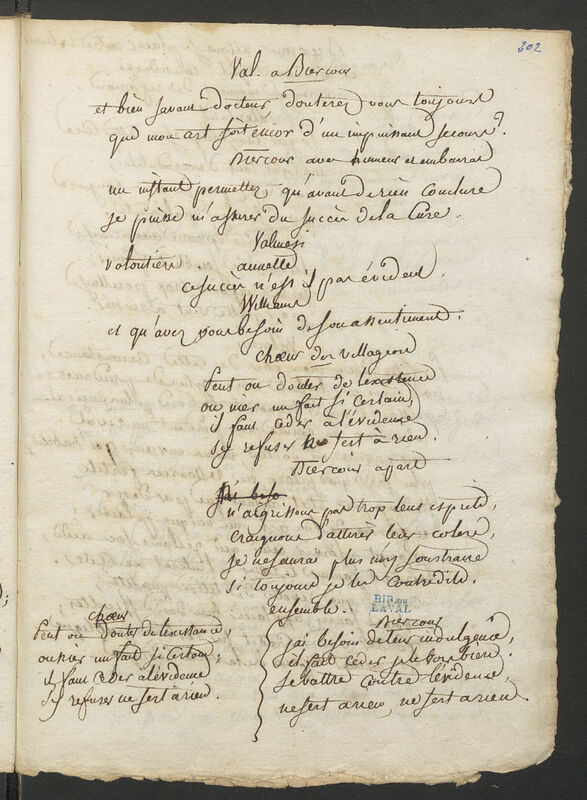 202
Val. a Biercour
et bien savant docteur douterez vous toujours
que mon art soit encor d'un impuissant secours?
Biercour avec humeur et embarras
un instant permettez qu'avant de rien conclure
je puisse m'assurer du succès de la Cure.
Valmesi
volontiers
annette
ce succès n'est il pas évident.
Williams
et qu'avez vous besoin de son assentiment.
Choeur des villageois
Peut on douter de lexistence
ou nier un fait si certain,
il faut céder a l'évidence
s'y refuser ne sert a rien.
Biercour apart
n'aigrissons pas trop leurs esprits,
craignons d'attirer leur colere,
je ne saurai plus m'y soustraire
si toujours je les contredits.
ensemble.
BIB. DE
LAVAL
choeur
Peut on douter de lexistance,
ou nier un fait si certain,
il faut céder a lévidence
s'y refuser ne sert a rien.
Biercour
j'ai besoin de leur indulgence,
il faut céder je le vois bien.
se battre contre l'évidence,
ne sert a rien, ne sert a rien.